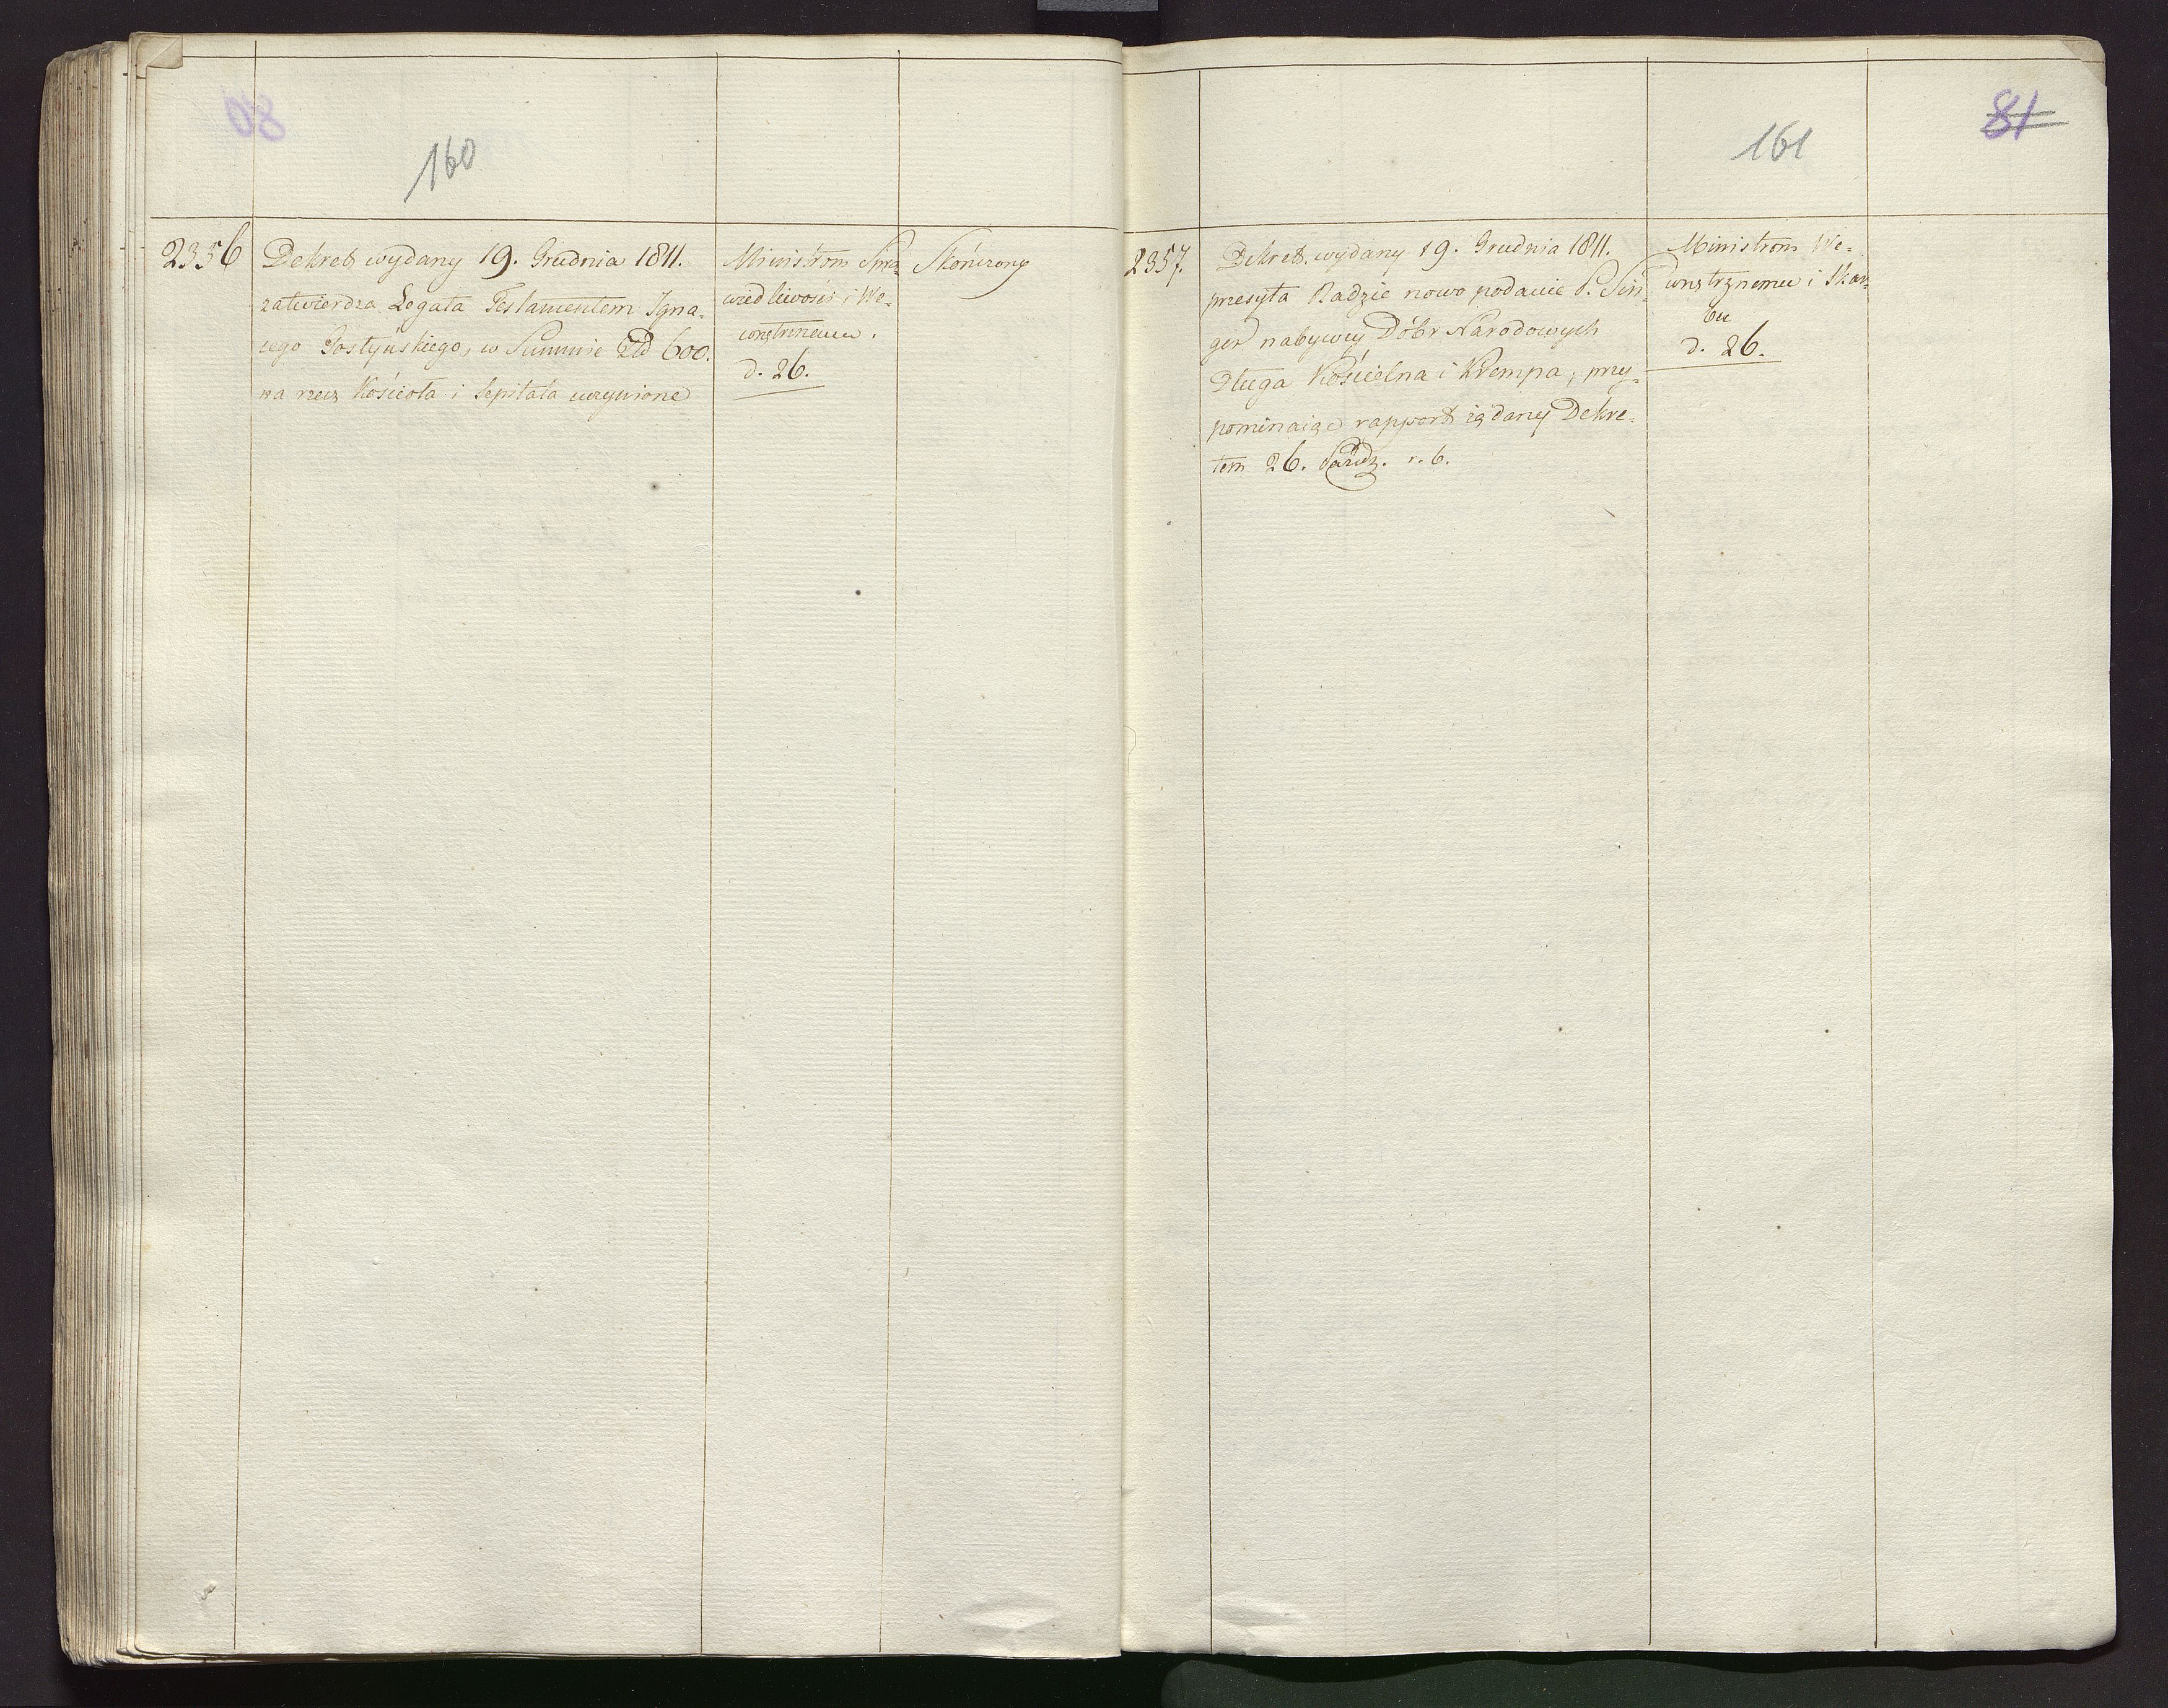 160
2356
Dekret wydany 19. Grudnia 1811.
zatwierdza Legata Testamentem Igna-
cego Gostyńskiego, w Summie Złd 600.
na rzecz Kościoła i Szpitala uczynione
Ministrom Spra-
wiedliwości i We-
wnętrznemu.
d. 26.
Skończony
161
81
2357.
Dekret wydany 19. Grudnia 1811.
przesyła Radzie nowo podanie P. Sin-
ger nabywcy Dóbr Narodowych
Długa Kościelna i Krempa, przy-
pominaiąc rapport żądany Dekre-
tem 26. Paźdz. r. b.
Ministrom We-
wnętrznemu i Skar-
bu
d. 26.